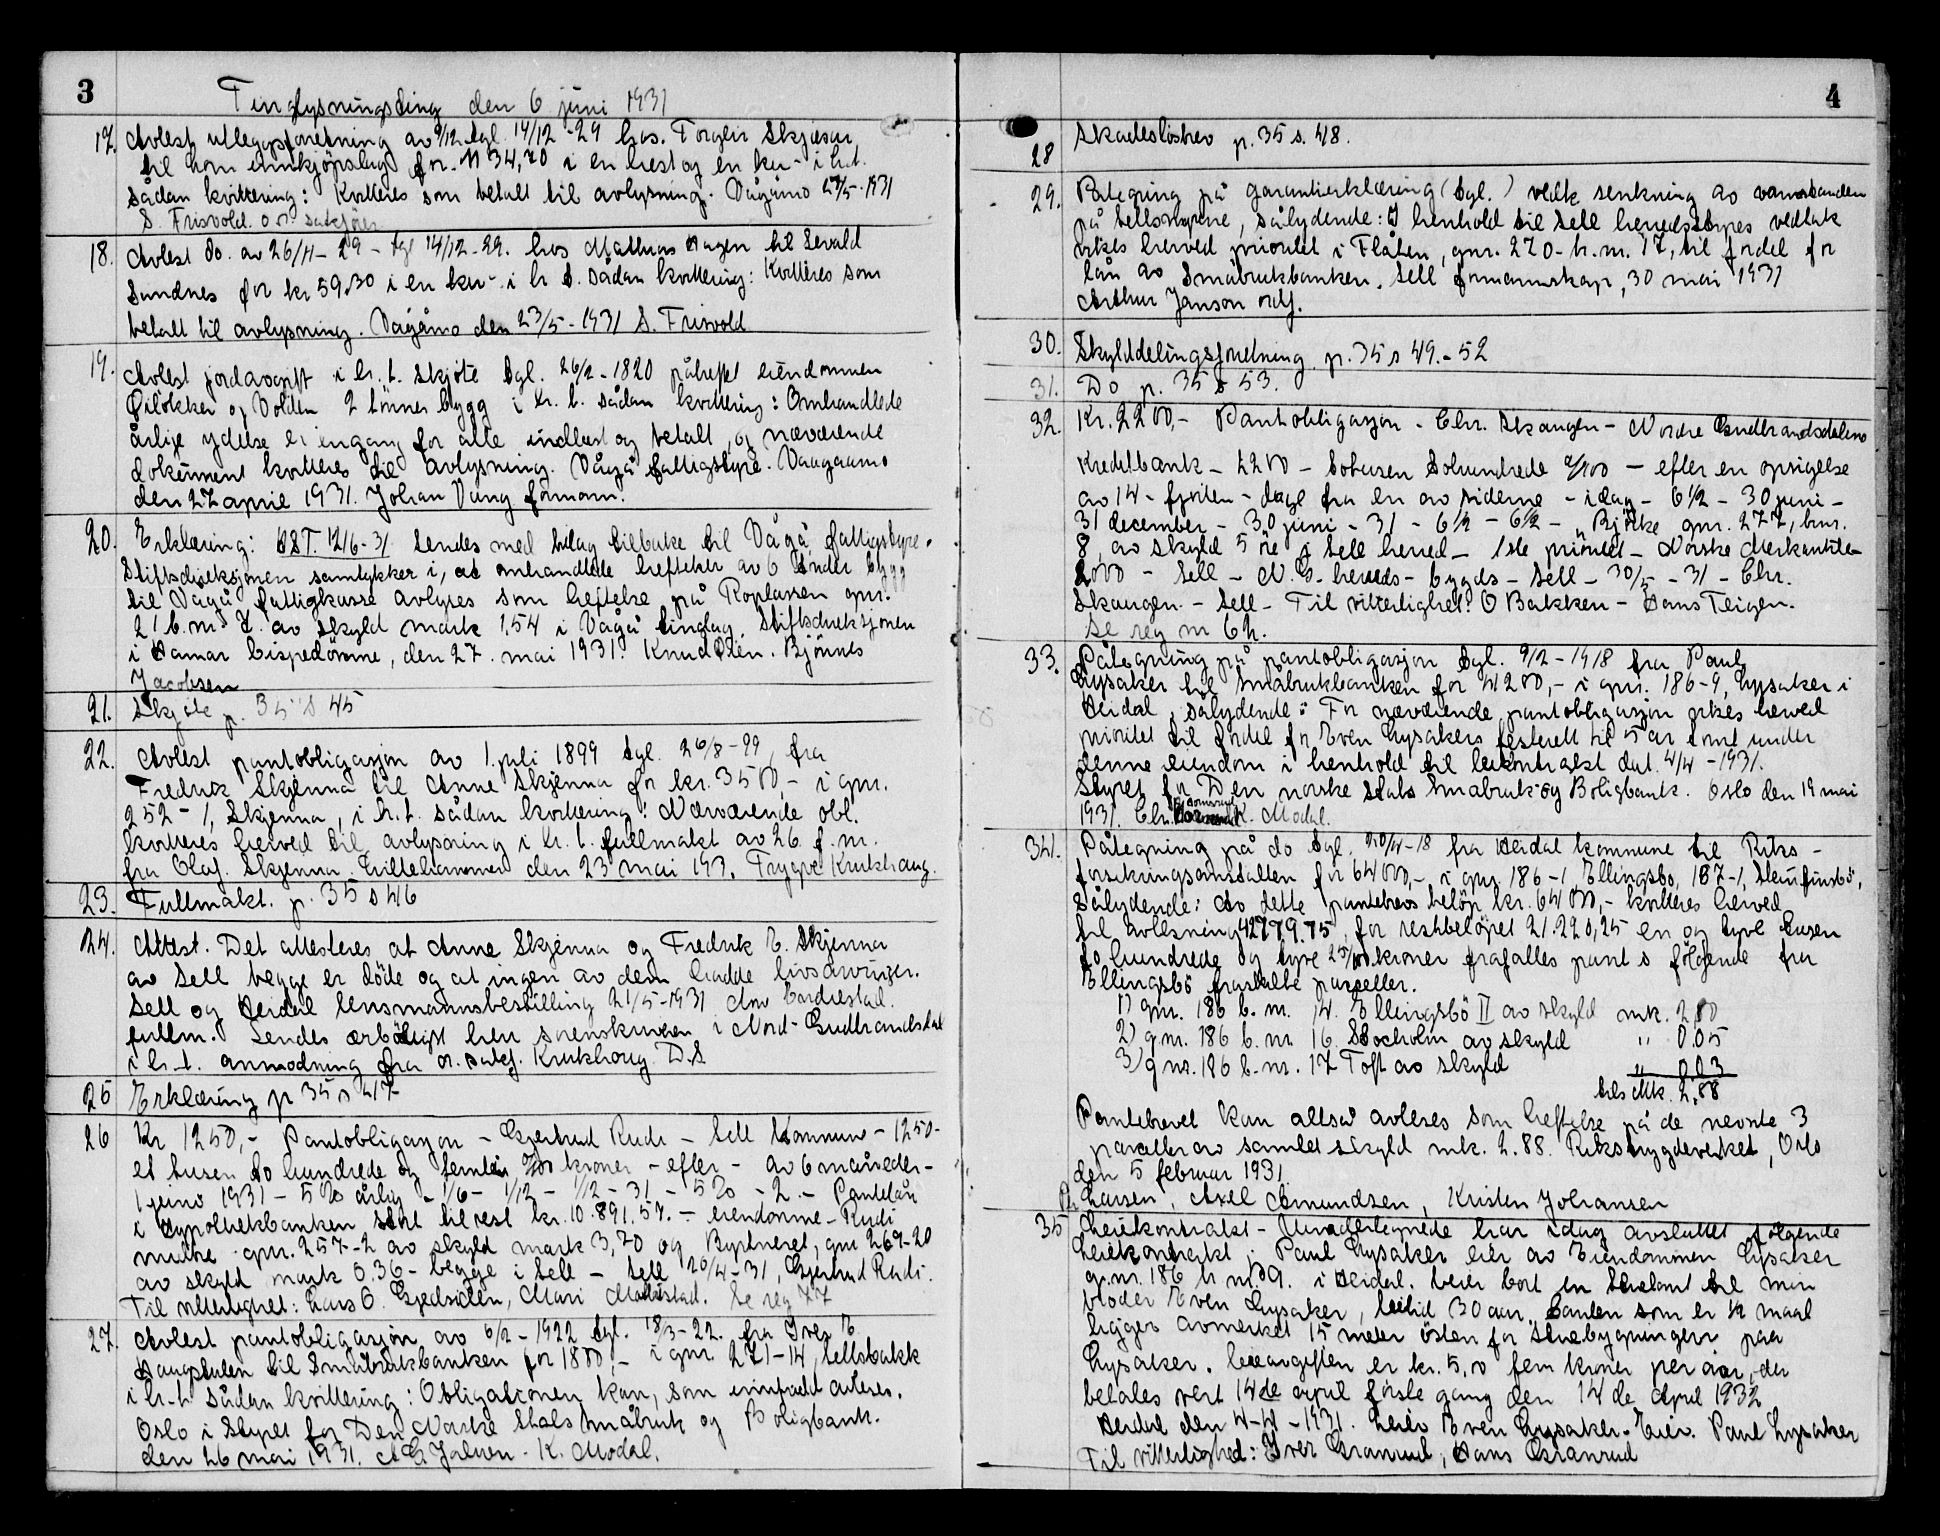 3
Tinglysningsding den 6 juni 1931
17. Avlest utleggsforretning av 9/12 tgl. 14/12-29 hos. Torgeir Skjæsar
til kom innkjøpslag for. 34,70 i en hest og en ku - i h.t.
sådan kvittering: Kvitteres som betalt til avlysning. Vågåmo 27/5-1931
S. Frisvold. o.r. sakfører
18. Avlest do. av 26/11-29 - tgl 14/12-29. hos Mathias Hagen til Sevald
Sundnes for kr 59.30 i en ku - i h t. sådan kvittering: Kvitteres som
betalt til avlysning. Vågåmo den 23/5-1931 S. Frisvold
19. Avlest jordavgift i h. t. skjøte tgl. 26/2-1820 påheftet eiendommen
og Volden 2 tönner bygg i h. t. sådan kvittering: Omhandlede
årlige ydelse er engang for alle innløst og betalt, og nærværende
dokument kvitteres til avlysning. Vågå fattigstyre. Vaagaamo
den 27 april 1931. Johan Vang formann.
20. Erklæring: 12/6-31 Sendes med bilag tilbake til Vågå fattigstyre.
Stiftsdireksjonen samtykker i, at omhandlede heftelser av 6 tønder bygg
til Vågå fattigkasse avlyses som heftelse på Roplassen gnr.
21 b.nr 2. av skyld mark 1,54 i Vågå tinglag. Stiftsdireksjonen
i Hamar bispedömme, den 27. mai 1931. Knud Øien. Bjönnes
Jacobsen
21. Skjöte p. 35 s 45
22. Avlest pantobligasjon av 1. juli 1899 tgl. 26/8-99, fra
Fredrik Skjenna til Anne Skjenna for kr. 3500,- i gnr.
252-1, Skjenna, i h.t. sådan kvittering: Nærværende obl.
kvitteres herved til avlysning i h. t. fullmakt av 26 f. m.
fra Olaf Skjenna. Lillehammer den 23 mai 193. Trygve Krukhaug.
23. Fullmakt. p. 35 s 46
24. Attest. Det attesteres at Anne Skjenna og Fredrik E. Skjenna
av Sell begge er döde og at ingen av dem hadde livsarvinger.
Sell og Heidal lensmannsbestilling 21/5-1931
fullm. Sendes ærbödigst herr sorenskriveren i Nord-Gudbrandsdal
i h.t. anmodning fra o.r. sakf. Krukhoug D.S
25 Erklæring p 35 s 47
26 Kr 1250,- Pantobligasjon - Gjertrud Rudi - Sell Kommune - 1250-
et tusen to hundrede og femti 0/00 kroner - efter - av 6 måneder -
1 juni 1931 - 5 % årlig - 1/6 - 1/12 - 1/12 - 31 - 5 % - 2. - Pantelån
i Hypothekbanken stort til rest kr. 10.891.57. - eiendomme - Rudi
midtre gnr. 257-2 av skyld mark 3,70 og gnr 267-20
av skyld mark 0.36 - begge i Sell - Sell 26/4-31, Gjertrud Rudi.
Til vitterlighet: Lars O. Gjedsiden, Mari Se reg 77
27. Avlest pantobligasjon av 6/2-1922 tgl. 18/3-22. fra Iver E
Haugstulen til Småbrukbanken for 1800,- i gnr. 271-14, Sellsbakk
i h.t. sådan kvittering: Obligationen kan, som innfridd avleses.
Oslo i Styret for Den Norske Stats Småbruk og Boligbank.
den 26 mai 1931. K. Modal.
4
28 Skadeslösbrev p. 35 s. 48.
29. Påtegning på garantierklæring (tgl. ) vedk senkning av vannstanden
på Sellsmyrene, sålydende: I henhold til Sell herredsstyres vedtak
vikes herved prioritet i Flåten, gnr. 270-b.nr. 17, til fordel for
lån av Småbrukbanken. Sell formannskap, 30 mai 1931
Arthur Janson ordf.
30. Skylddelingsforretning p. 35 s 49. - 52
31. Do p. 35 s 53.
32. Kr. 2200,- Pantobligasjon - Chr. Skaugen - Nordre Gudbrandsdalens
Kreditbank - 2200 - totusen tohundrede 0/100 - efter en opsigelse
av 14 - fjorten - dage fra en av siderne - idag - 6 1/2 - 30 juni -
31 december - 30 juni - 31 - 6 1/2 - 6 1/2 -, Bjölke gnr. 277, bnr.
8, av skyld 5 öre i Sell herred - 1ste prioritet - Norske Merkantile
2000 - Sell - N.G - herreds - bygds - Sell - 30/5 - 31 - Chr.
Skaugen. - Sell - Til vitterlighet: O Bakken - Hans Teigen.
Se reg nr 62.
33. Påtegning på pantobligasjon tgl. 9/2-1918 fra Paul
Lysaker til Småbrukbanken for 4200,- i gnr. 186-9, Lysaker i
Heidal, sålydende: For nærværende pantobligasjon vikes herved
prioritet til fordel for Even Lysakers festerett til 5 ar tomt under
denne eiendom i henhold til leiekontrakt dat. 4/4-1931.
Styret for Den norske Stats Småbruk og Boligbank. Oslo den 19 mai
1931. Chr. K. Modal.
34. Påtegning på do tgl. 20/4-18 fra Heidal kommune til Riks-
forsikringsanstalten for 64000,- i gnr. 186-1, Ellingsbo, 187-1, Steinfinsbö,
Sålydende: Av dette pantebrevs belöp kr. 64000,- kvitteres herved
til avlesning 42779.75, for restbelöpet 21.220,25 en og tyve tusen
to hundrede og tyve 25/100 kroner frafalles pant i fölgende fra
Ellingsbö fraskilte parseller.
1) gnr. 186 b. nr. 14. Ellingsbö II av skyld mk. 2,80
2) g.nr. 186 b. nr 16. Stocholm av skyld " 0.05
3) g nr. 186 b.nr. 17 Toft av skyld " 0.03
tils Mk. 2,88
Pantebrevet kan altså avleses som heftelse på de nevnte 3
parceller av samlet skyld mk. 2.88. Rikstrygdeverket, Oslo
den 5 februar 1931.
Larsen, Axel Amundsen, Kristen Johansen
35 Leiekontrakt - Undertegnede har idag avsluttet fölgende
Leiekontrakt: Paul Lysaker eier av Eiendommen Lysaker
g.nr. 186 b nr. 9. i Heidal. leier bort en til min
broder Even Lysaker, leietid 30 aar. Tomten som er 1/2 maal
ligger avmerket 15 meter östen for Stuebygningen paa
Lysaker. Leieavgiften er kr. 5,00 fem kroner per aar, der
betales vert 14de april förste gang den 14 de April 1932
Heidal den 4-4-1931. Leier Even Lysaker. Eier. Paul Lysaker
Til Vitterlighed: Iver Granrud, Hans Granrud